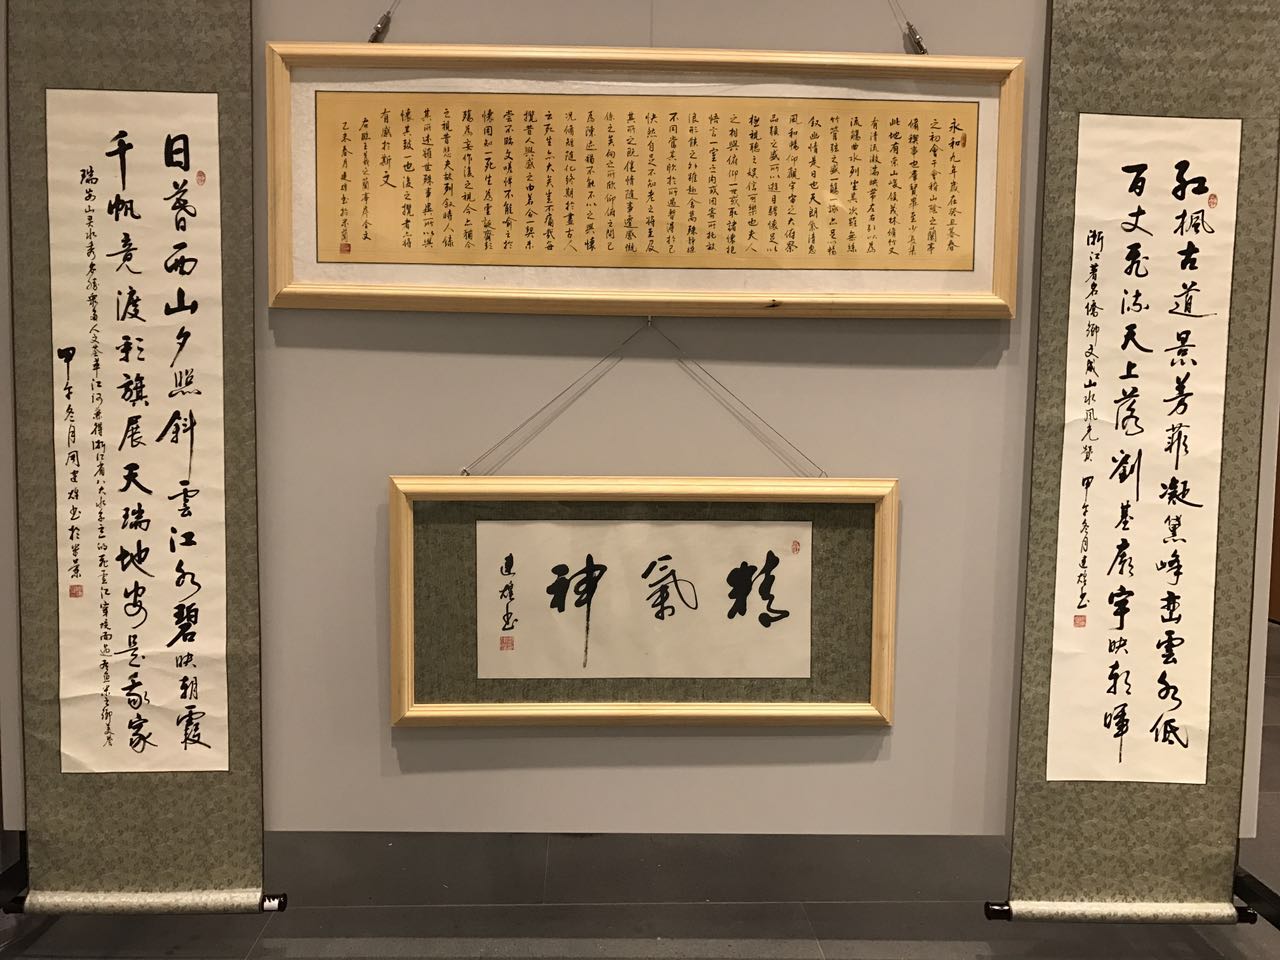 紅楓古道景芳菲凝黛峰巒雲水低
百丈飛流天上落劉基廟宇映朝暉
浙江著名僑鄉文成山水風光贊 甲午冬月建雄書
永和九年歲在癸丑暮春
之初會于會稽山陰之蘭亭
脩禊事也羣賢畢至少長咸集
此地有崇山峻領茂林脩竹又
有清流激湍映帶左右引以為
流觴曲水列坐其次雖無絲
竹管弦之盛一觴一詠亦足以暢
叙幽情是日也天朗氣清惠
風和暢仰觀宇宙之大俯察
品類之盛所以遊目騁懷足以
極視聽之娛信可樂也夫人
之相與俯仰一世或取諸懷抱
悟言一室之內或因寄所託放
浪形骸之外雖趣舍萬殊靜躁
不同當其欣於所遇暫得於己
快然自足不知老之將至及
其所之既倦情隨事遷感慨
係之矣向之所欣俛仰之間已
為陳迹猶不能不以之興懷
況脩短隨化終期於盡古人
云死生亦大矣豈不痛哉每
攬昔人興感之由若合一契未
嘗不臨文嗟悼不能喻之於
懷固知一死生為虛誕齊彭
殤為妄作後之視今亦猶今
之視昔悲夫故列叙時人錄
其所述雖世殊事異所以興
懷其致一也後之攬者亦將
有感於斯文
乙未春月建雄書於
精氣神
建雄書
日暮西山夕照斜雲江水碧映朝霞
千帆竞渡彩旗展天瑞地安是我家
瑞安山灵水秀名勝衆多人文薈萃江河兼得浙江省八大水系之一的飛雲江穿境而過魚米之鄉
甲午冬月周建雄書於